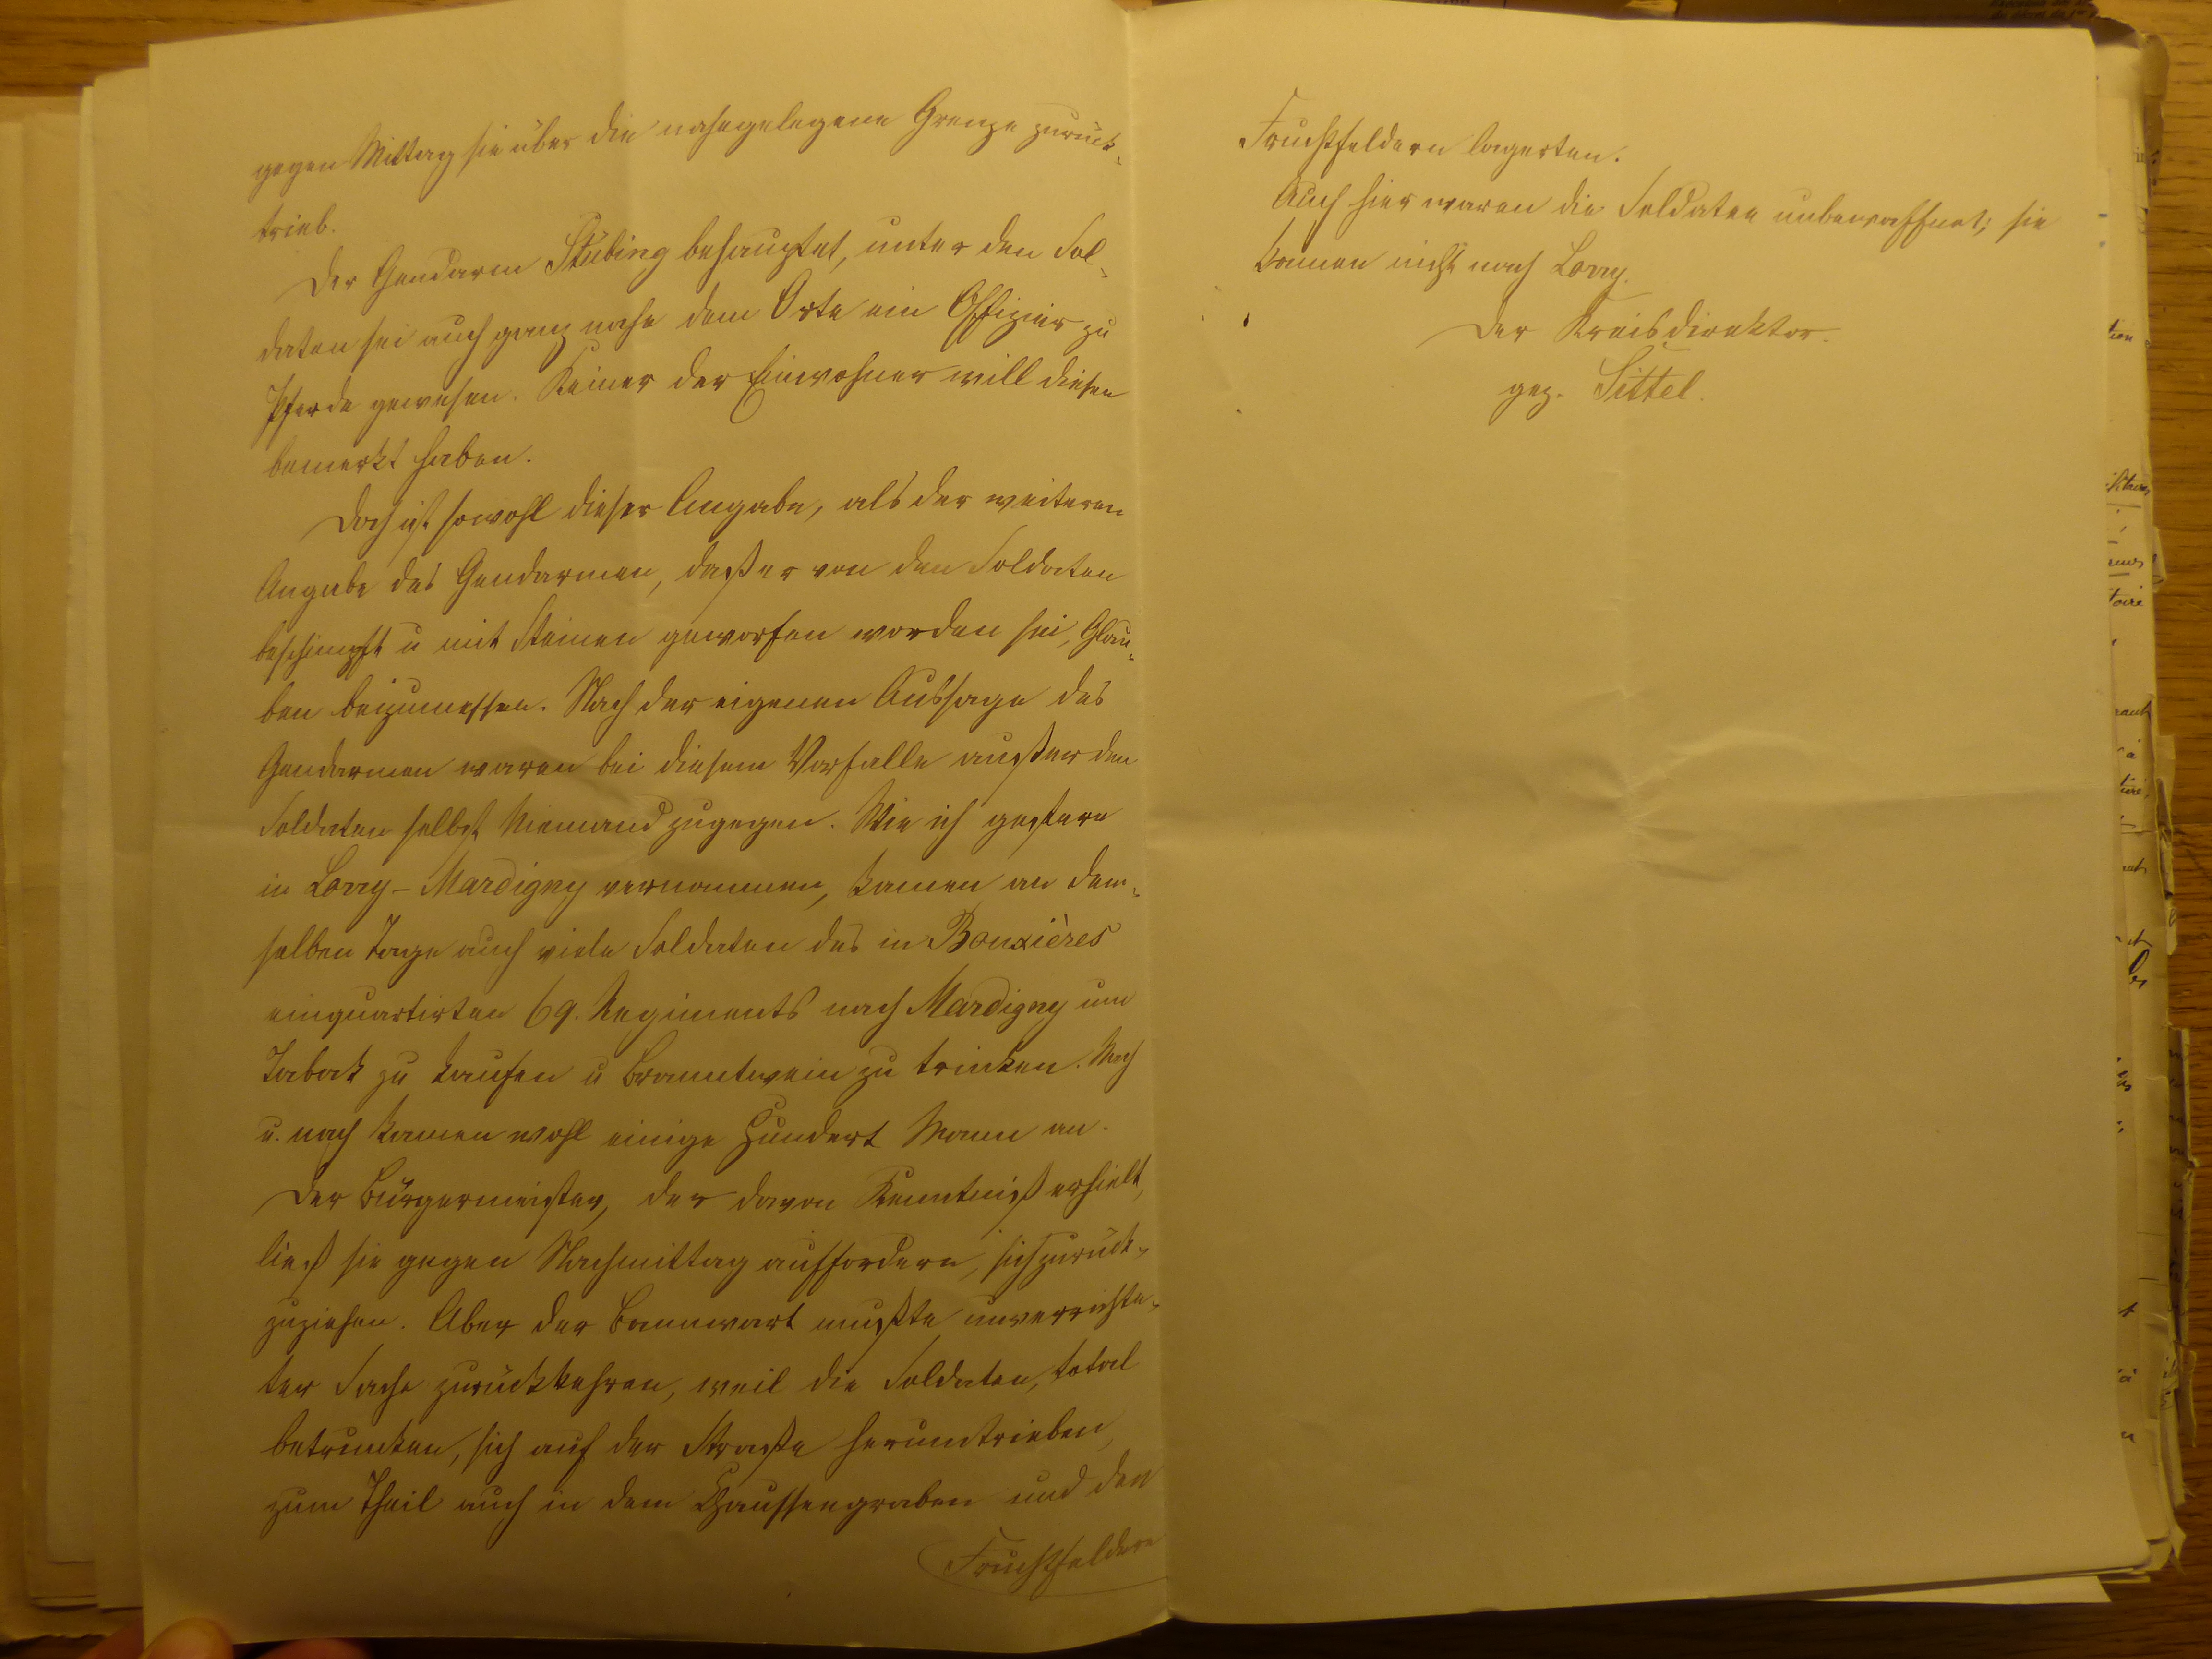 gegen Mittag sie über die nahegelegene Grenze zurück-
trieb.
Der Gendarm Stübing behauptet, unter den Sol-
daten sei auch ganz nahe dem Orte ein Offizier zu
Pferde gewesen. Keiner der Einwohner will diesen
bemerkt haben.
Doch ist sowohl dieser Angabe, als der weiteren
Angabe des Gendarmen, daß er von den Soldaten
beschimpft u mit Steinen geworfen worden sei, Glau-
ben beizumessen. Nach der eigenen Aussage des
Gendarmen waren bei diesem Vorfalle außer den
Soldaten selbst Niemand zugegen. Wie ich gestern
in Lorry-Mardigny vernommen, kamen an dem-
selben Tage auch viele Soldaten des in Bouxières
einquartirten 69. Regiments nach Mardigny um
Taback zu kaufen u Branntwein zu trinken. Nach
u. nach kamen wohl einige Hundert Mann an.
Der Bürgermeister, der davon Kenntniß erhielt,
ließ sie gegen Nachmittag auffordern, sich zurück-
zuziehen. Aber der Bannwart mußte unverrichte-
ter Sache zurückkehren, weil die Soldaten, total
betrunken, sich auf der Straße herumtrieben,
zum Theil auch in dem Chausseegraben und den
Fruchtfeldern
Fruchtfeldern lagerten.
Auch hier waren die Soldaten unbewaffnet; sie
kamen nicht nach Lorry.
Der Kreisdirektor.
gez. Sittel.